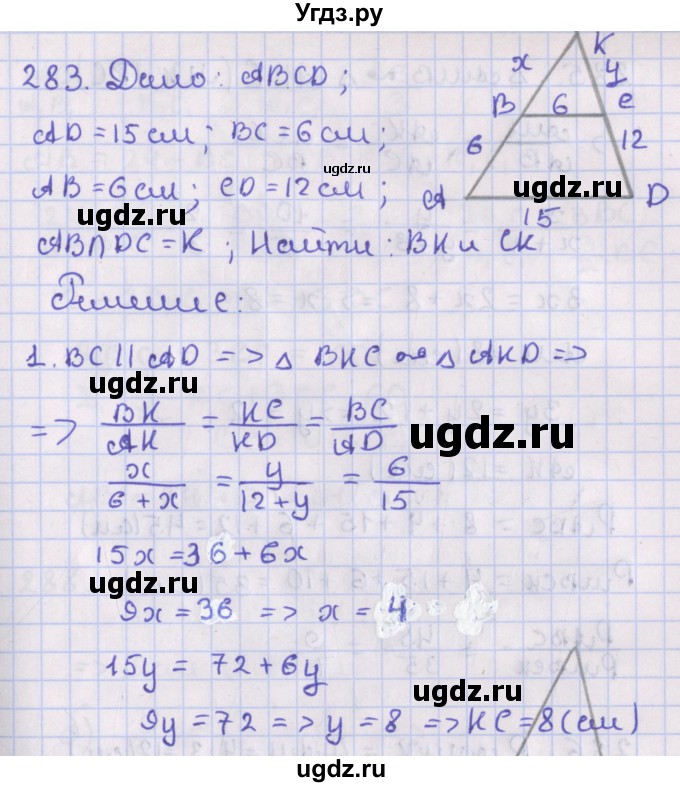 Угдз.ру
283. Дано: ABCD;
AD = 15 см; BC = 6 см;
AB = 6 см; CD = 12 см;
AB∩DC = K; Найти: BK и CK
Решение:
1. BC || AD => △ BKC ∾ △ AKD =>
=> BK/AK = KC/KD = BC/AD
x/6+x = y/12+y = 6/15
15x = 36 + 6x
9x = 36 => x = 4
15y = 72 + 6y
9y = 72 => y = 8 => KC = 8 (см)
K
x
y
B
6
C
6
12
A
15
D
ugdz.ru
ugdz.ru
ugdz.ru
ugdz.ru
ugdz.ru
ugdz.ru
ugdz.ru
ugdz.ru
ugdz.ru
ugdz.ru
ugdz.ru